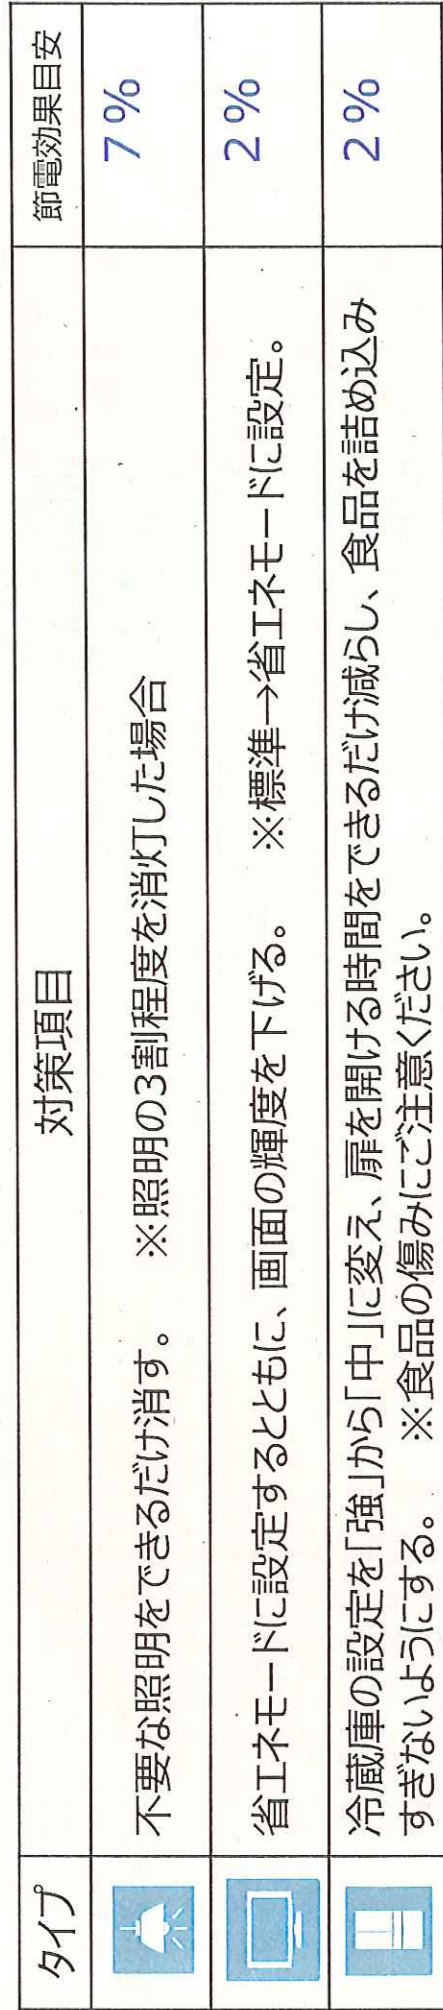 タイプ 対策項目 節電効果目安
不要な照明をできるだけ消す。 ※照明の3割程度を消灯した場合 7%
省エネモードに設定するとともに、画面の輝度を下げる。 ※標準→省エネモードに設定。 2%
冷蔵庫の設定を「強」から「中」に変え、扉を開ける時間をできるだけ減らし、食品を詰め込み 2%
すぎないようにする。 ※食品の傷みにご注意ください。